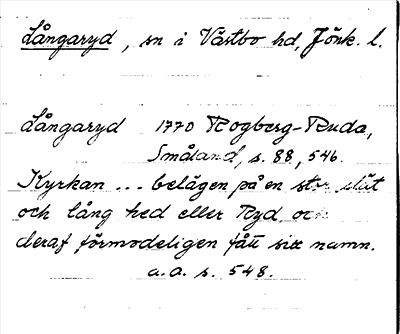 Långaryd, sn i Västbo hd, Jönk. l.
Långaryd 1770 Rogberg-Ruda,
Småland, s. 88, 546.
Kyrkan ... belägen på en stor slät
och lång hed eller Ryd och
deraf förmodeligen fått sitt namn.
a.a. s. 548.